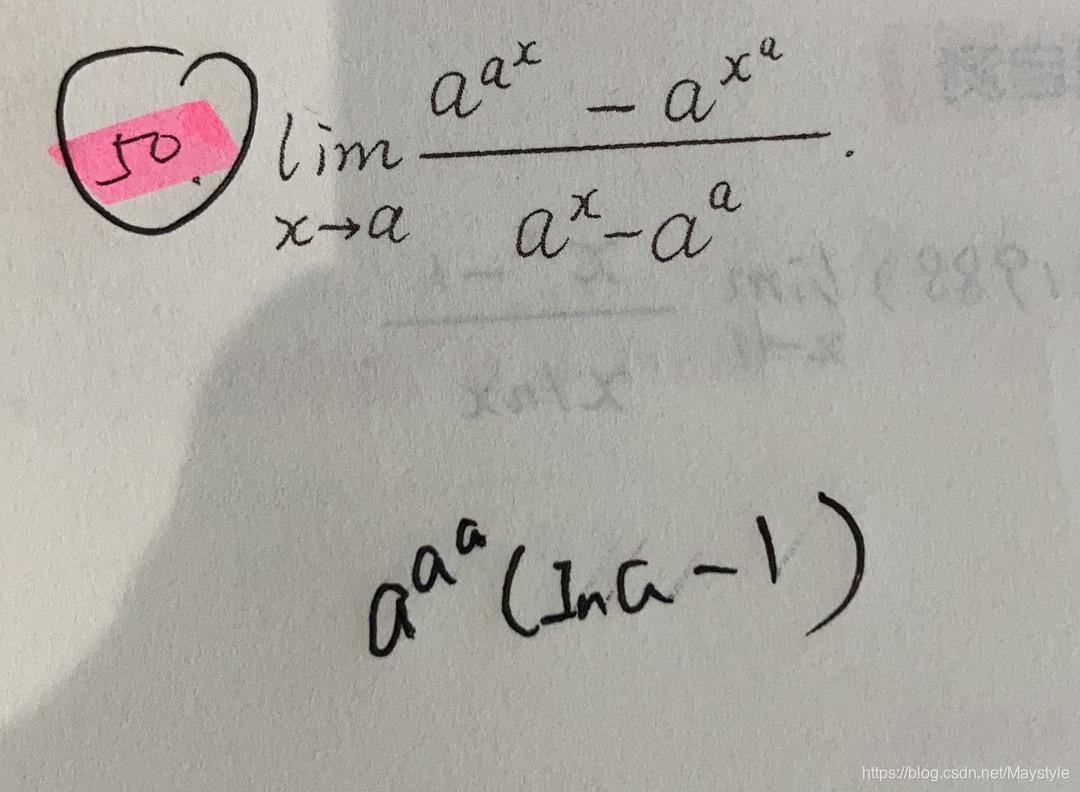 50. lim x→a (a^{a^x} - a^{x^a}) / (a^x - a^a) .
a^{a^a} (ln a - 1)
https://blog.csdn.net/Maystyle